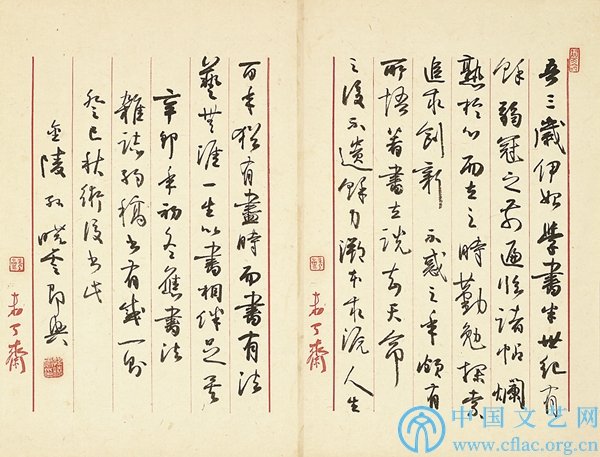 吾三歲伊始學書半世紀有
餘弱冠之前遍臨諸帖爛
熟於心而立之時勤勉探索
追求創新不惑之年頗有
所悟著書立說知天命
之後不遺餘力溯本求源人生
百年猶有盡時而書有法
藝無涯一生以書相伴足矣
辛卯年初冬應書法
雜誌約稿書有感一則
癸巳秋術後書此
金陵孫曉雲即興
中国文艺网
www.cflac.org.cn